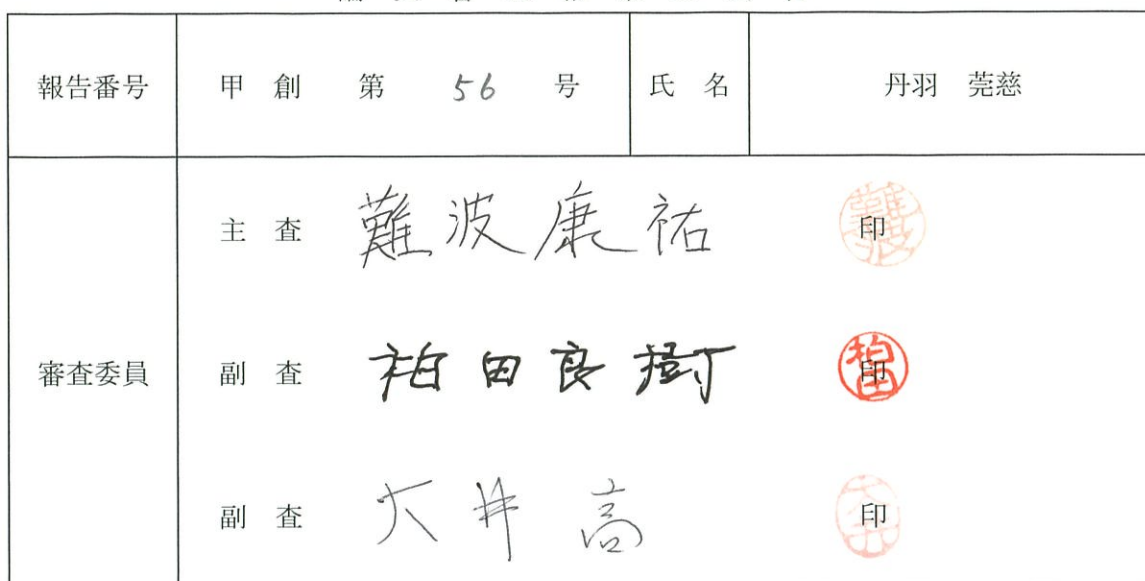 報告番号 甲 創 第 56 号 氏 名 丹羽 莞慈
主 査 難波康祐 印
審査委員 副 査 柏田良樹 印
副 査 大井 高 印